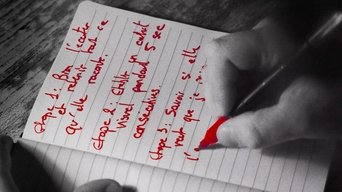 Étape 1: Bien l'écouter
et retenir tout ce
qu'elle raconte.
Étape 2: Établir un contact
visuel pendant 5 sec
consécutives.
Étape 3: Savoir si elle
veut que je
l'